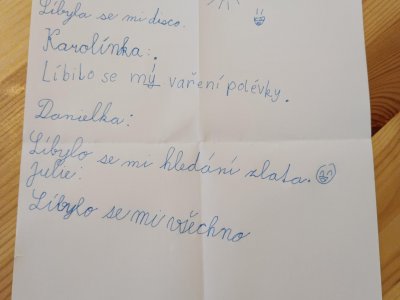 Líbyla se mi disco.
Karolínka:
Líbilo se mý vaření polévky.
Danielka:
Líbylo se mi hledání zlata.
Julie:
Líbylo se mi všechno